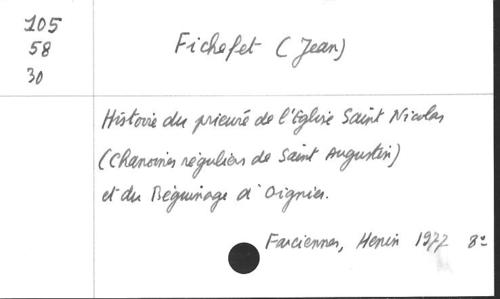 105
58
30
Fichefet (Jean)
Histoire du prieuré de l'Eglise Saint Nicolas
(Chanoines réguliers de Saint Augustin)
et du Béguinage d'Oignies.
Farciennes, Henin 1977 8º